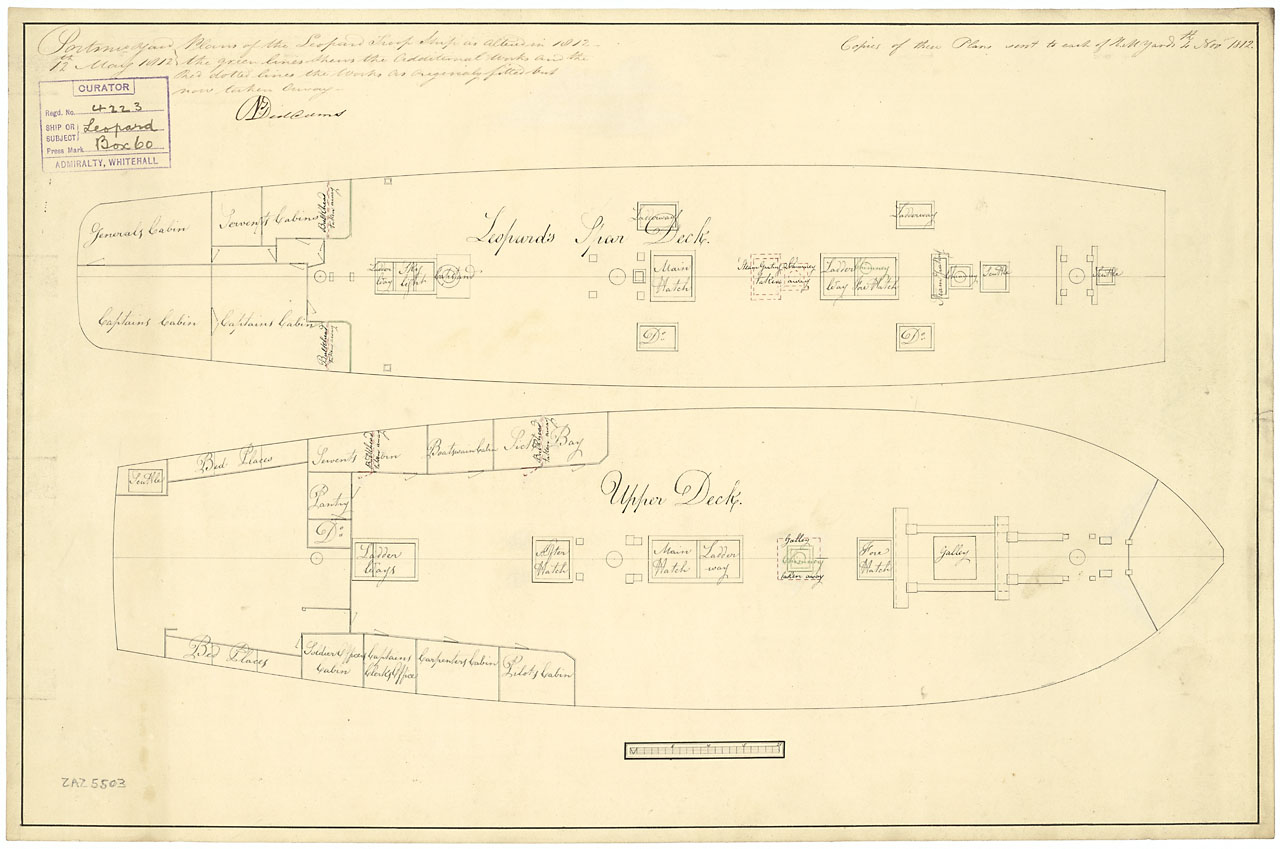 Portsmo Yard Plans of the Leopard Troop Ship as Altered in 1812.
12th May 1812 the green lines shews the Additional Works and the
Red dotted lines the Works as Originaly fitted but
now taken away.
Copies of these Plans sent to each of the M Yards 4th Novr 1812.
CURATOR
Regd. No. 4223
SHIP OR SUBJECT Leopard
Press Mark Box 60
ADMIRALTY, WHITEHALL
Leopard's Spar Deck.
Generals Cabin
Servents Cabin
Bulkhead taken away
Captains Cabin
Captains Cabin
Bulkhead taken away
Ladder Way
Sky Light
Capstand
Ladderway
Main Hatch
Do.
Main Grating taken
Chimney away
Ladder Way
Chimney Fore Hatch
Ladderway
Do.
Chimney
Scuttle
Scuttle
Upper Deck.
Scuttle
Bed Places
Servents Cabin
Bulkhead taken away
Boatswains Cabin
Sick Bay
Bulkhead taken away
Pantry
Do.
Ladder Ways
After Hatch
Main Hatch
Ladder way
Galley
Chimney
taken away
Fore Hatch
Galley
Bed Places
Soldier Officers Cabin
Captains Clerks Office
Carpenters Cabin
Pilots Cabin
ZAZ 5503